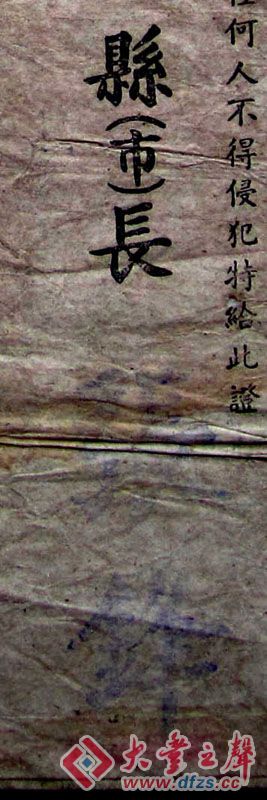 任何人不得侵犯特給此證
縣(市)長
大豐之聲
www.dfzs.cc